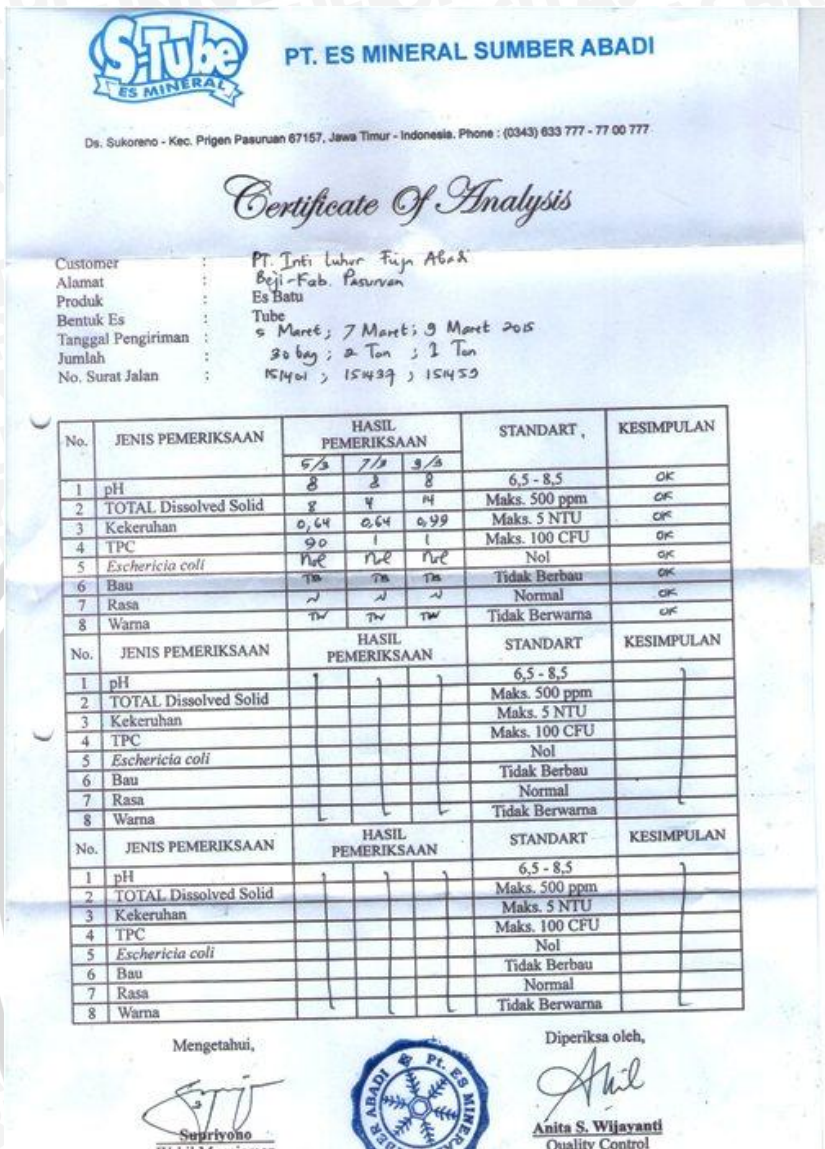 S-Tube
ES MINERAL
PT. ES MINERAL SUMBER ABADI
Ds. Sukoreno - Kec. Prigen Pasuruan 67157, Jawa Timur - Indonesia. Phone : (0343) 633 777 - 77 00 777
Certificate Of Analysis
Customer : PT. Inti Luhur Fuja Abadi
Alamat : Beji-Kab. Pasuruan
Produk : Es Batu
Bentuk Es : Tube
Tanggal Pengiriman : 5 Maret; 7 Maret; 9 Maret 2015
Jumlah : 30 bag ; 2 Ton ; 1 Ton
No. Surat Jalan : 151401 ; 151437 ; 151459
No. JENIS PEMERIKSAAN HASIL PEMERIKSAAN STANDART KESIMPULAN
5/3 7/3 9/3
1 pH 8 8 8 6,5 - 8,5 OK
2 TOTAL Dissolved Solid 8 4 14 Maks. 500 ppm OK
3 Kekeruhan 0,64 0,64 0,99 Maks. 5 NTU OK
4 TPC 90 1 1 Maks. 100 CFU OK
5 Eschericia coli Nol Nol Nol Nol OK
6 Bau TB TB TB Tidak Berbau OK
7 Rasa N N N Normal OK
8 Warna TW TW TW Tidak Berwarna OK
No. JENIS PEMERIKSAAN HASIL PEMERIKSAAN STANDART KESIMPULAN
1 pH 6,5 - 8,5
2 TOTAL Dissolved Solid Maks. 500 ppm
3 Kekeruhan Maks. 5 NTU
4 TPC Maks. 100 CFU
5 Eschericia coli Nol
6 Bau Tidak Berbau
7 Rasa Normal
8 Warna Tidak Berwarna
No. JENIS PEMERIKSAAN HASIL PEMERIKSAAN STANDART KESIMPULAN
1 pH 6,5 - 8,5
2 TOTAL Dissolved Solid Maks. 500 ppm
3 Kekeruhan Maks. 5 NTU
4 TPC Maks. 100 CFU
5 Eschericia coli Nol
6 Bau Tidak Berbau
7 Rasa Normal
8 Warna Tidak Berwarna
Mengetahui, Diperiksa oleh,
PT. ES MINERAL ABADI
Supriyono Anita S. Wijayanti
Quality Control